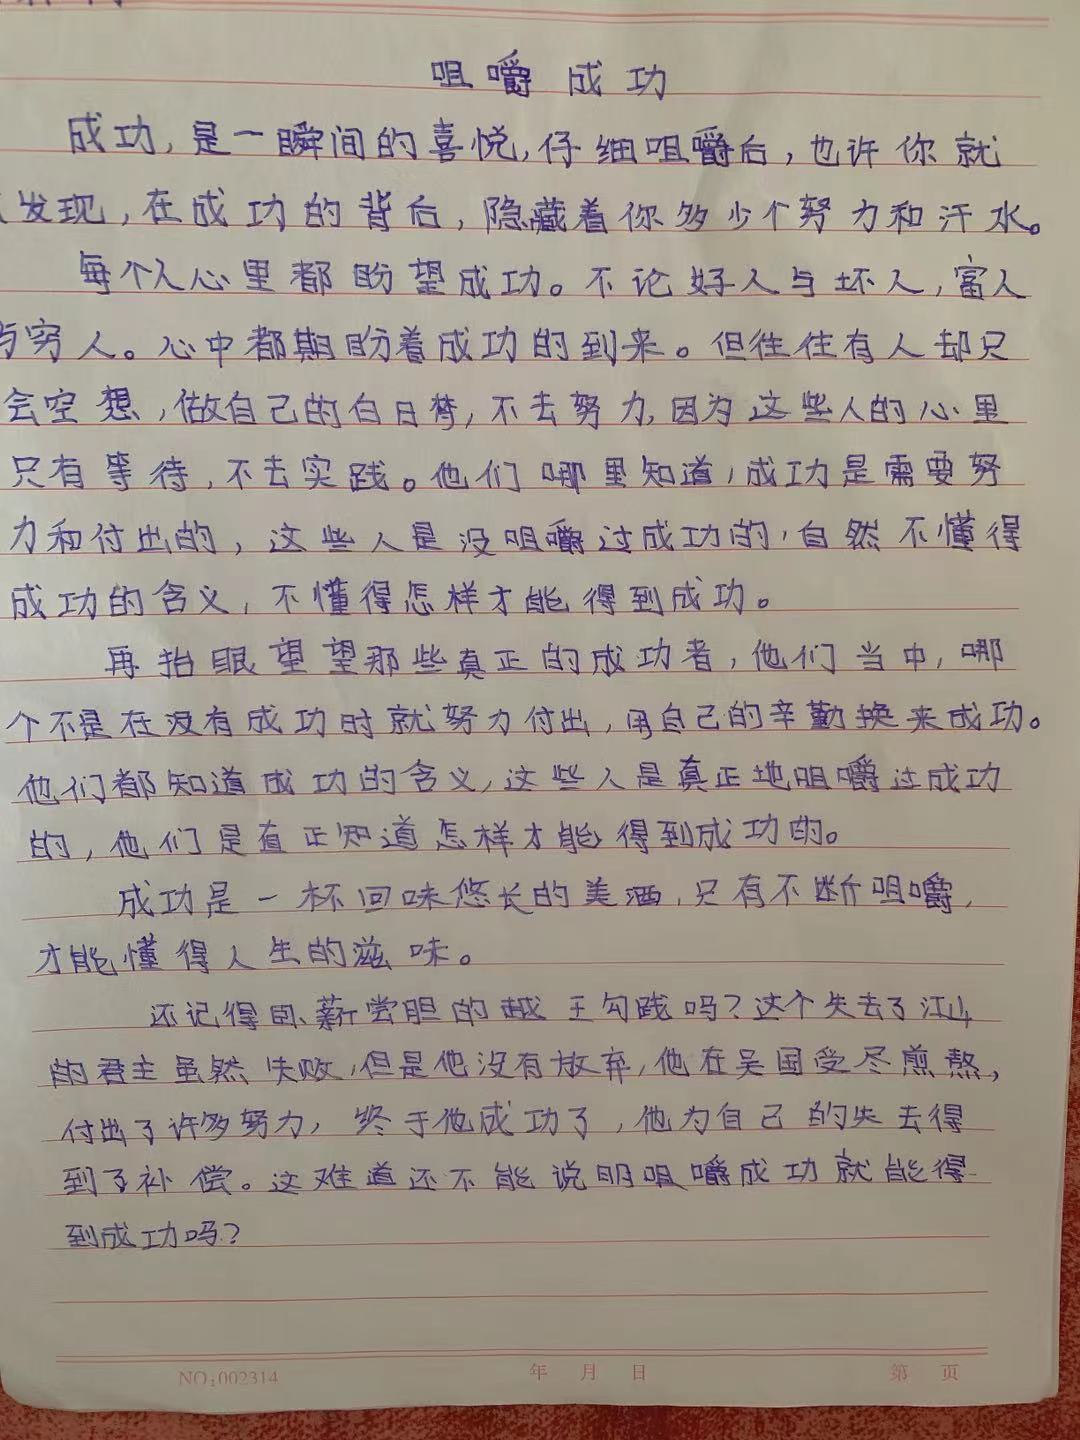 咀嚼成功
成功,是一瞬间的喜悦,仔细咀嚼后,也许你就
发现,在成功的背后,隐藏着你多少个努力和汗水。
每个人心里都盼望成功。不论好人与坏人,富人
与穷人。心中都期盼着成功的到来。但往往有人却只
会空想,做自己的白日梦,不去努力,因为这些人的心里
只有等待,不去实践。他们哪里知道,成功是需要努
力和付出的,这些人是没咀嚼过成功的,自然不懂得
成功的含义,不懂得怎样才能得到成功。
再抬眼望望那些真正的成功者,他们当中,哪
个不是在没有成功时就努力付出,用自己的辛勤换来成功。
他们都知道成功的含义,这些人是真正地咀嚼过成功
的,他们是真正知道怎样才能得到成功的。
成功是一杯回味悠长的美酒,只有不断咀嚼,
才能懂得人生的滋味。
还记得卧薪尝胆的越王勾践吗?这个失去了江山
的君主虽然失败,但是他没有放弃,他在吴国受尽煎熬,
付出了许多努力,终于他成功了,他为自己的失去得
到了补偿。这难道还不能说明咀嚼成功就能得
到成功吗?
NO:002314 年 月 日 第 页